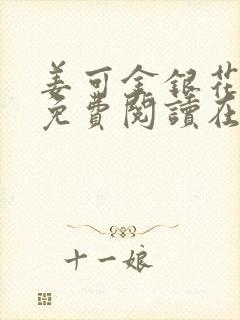 姜可金銀花
免費閱讀在
十一娘